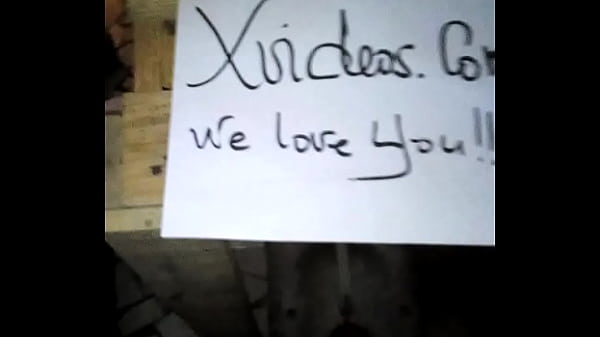 Xvideos. Com
we love you!!